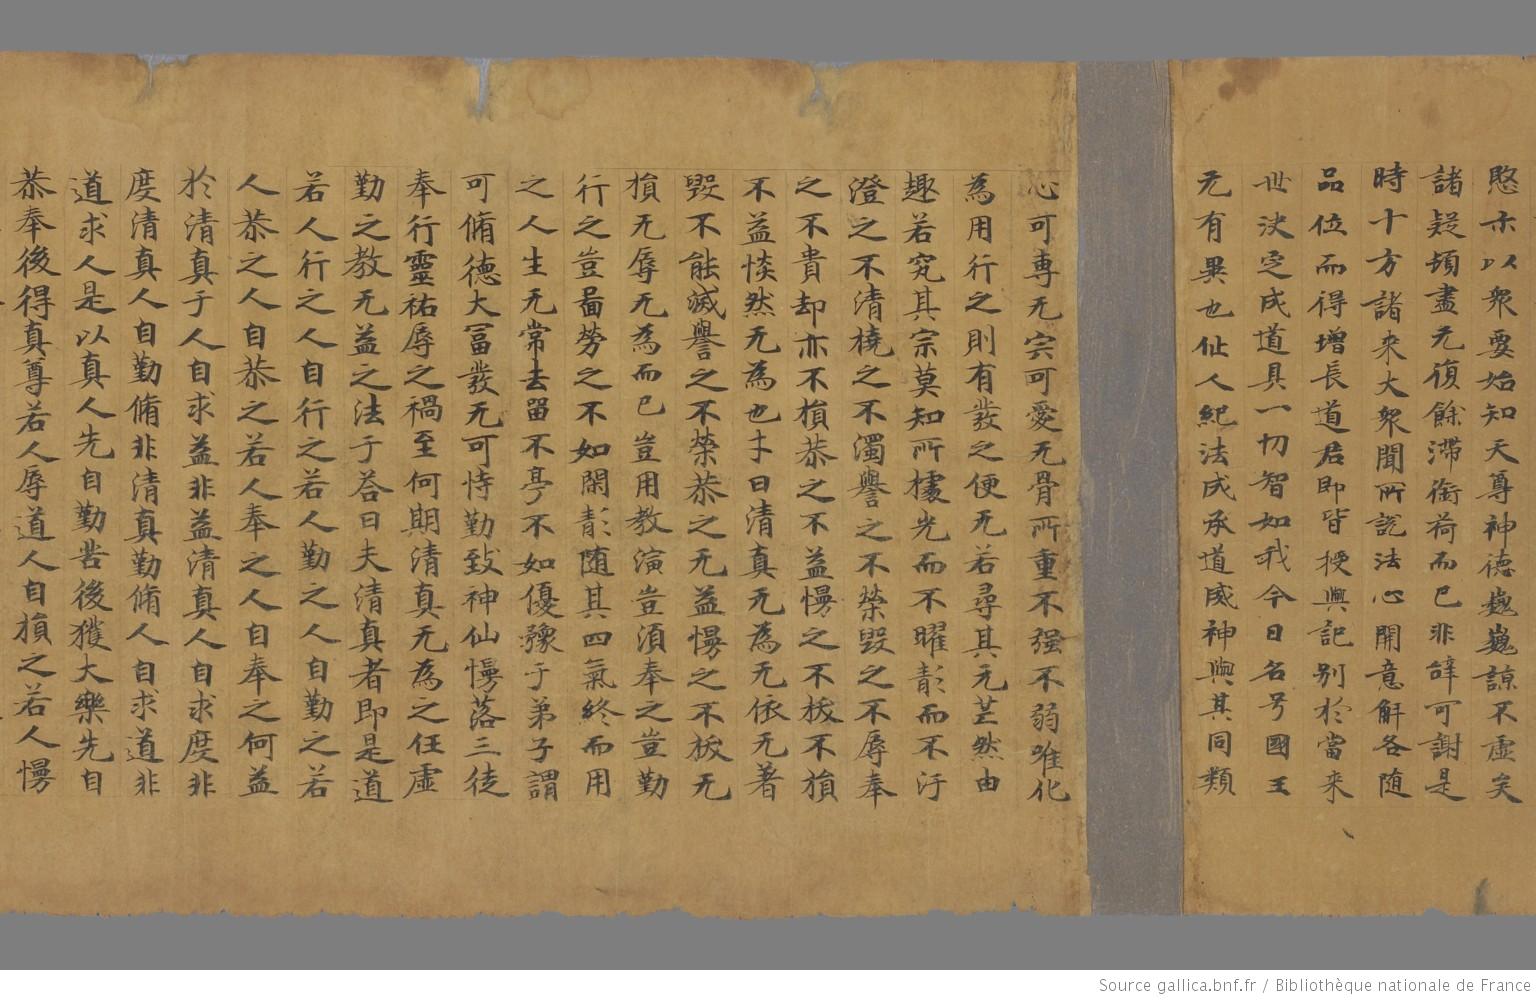 愍示以衆要始知天尊神德巍巍諒不虛矣
諸疑頓盡无復餘滯銜荷而已非辝可謝是
時十方諸來大衆聞所說法心開意解各随
品位而得增長道君即皆授與記别於當來
世決定成道具一切智如我今日名号國王
无有異也仙人紀法成承道威神與其同類
心可専无宍可愛无骨所重不强不弱唯化
為用行之則有發之便无若尋其元芒然由
趣若究其宗莫知所㯫光而不曜彰而不汙
澄之不清橈之不濁譽之不榮毀之不辱奉
之不貴却亦不損恭之不益慢之不桵不損
不益惔然无為也于曰清真无為无依无著
毀不能滅譽之不榮恭之无益慢之不桵无
損无辱无為而已豈用教演豈湏奉之豈勤
行之豈啚勞之不如閑彰随其四氣終而用
之人生无常去留不亭不如優豫于弟子謂
可脩德大冨發无可恃勤致神仙慢落三徒
奉行靈祐辱之禍至何期清真无為之任虛
勤之教无益之法于荅曰夫清真者即是道
若人行之人自行之若人勤之人自勤之若
人恭之人自恭之若人奉之人自奉之何益
於清真于人自求益非益清真人自求度非
度清真人自勤脩非清真勤脩人自求道非
道求人是以真人先自勤苦後獲大樂先自
恭奉後得真尊若人辱道人自損之若人慢
Source gallica.bnf.fr / Bibliothèque nationale de France